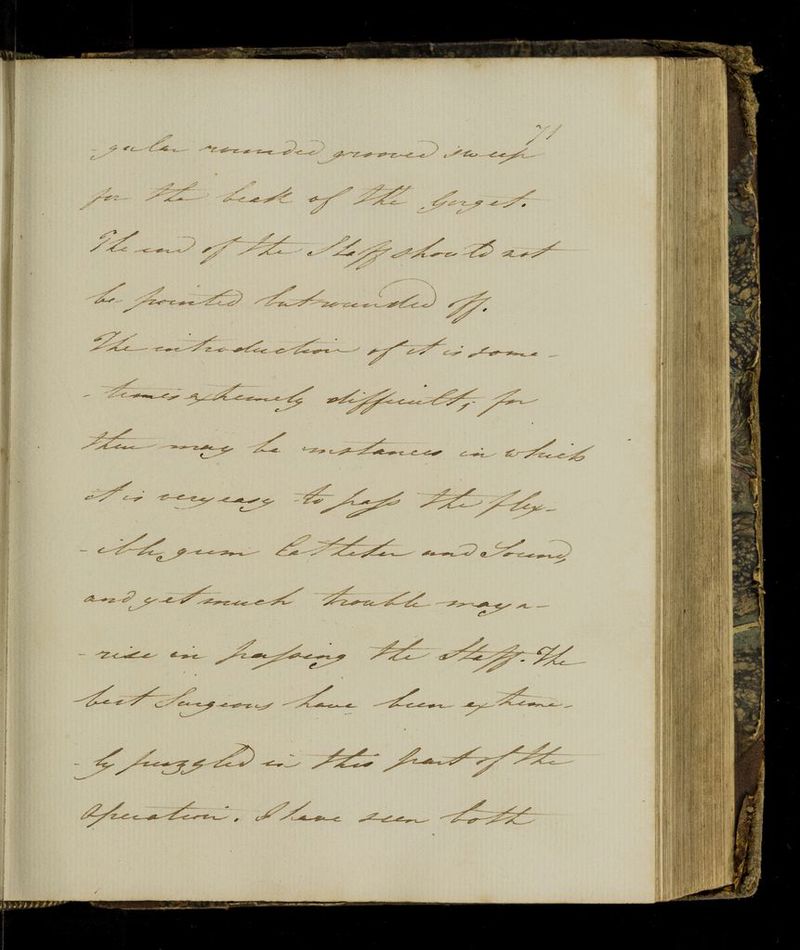 71
- gular rounded grooved sweep
for the beak of the Gorget.
The end of the Staff should not
be pointed but rounded off.
The introduction of it is some-
- times extremely difficult, for
there may be instances in which
it is very easy to pass the flex-
- ible gum Catheter and Sound,
and yet much trouble may a-
- rise in passing the Staff. The
best Surgeons have been extreme-
- ly puzzled in this part of the
Operation. I have seen both